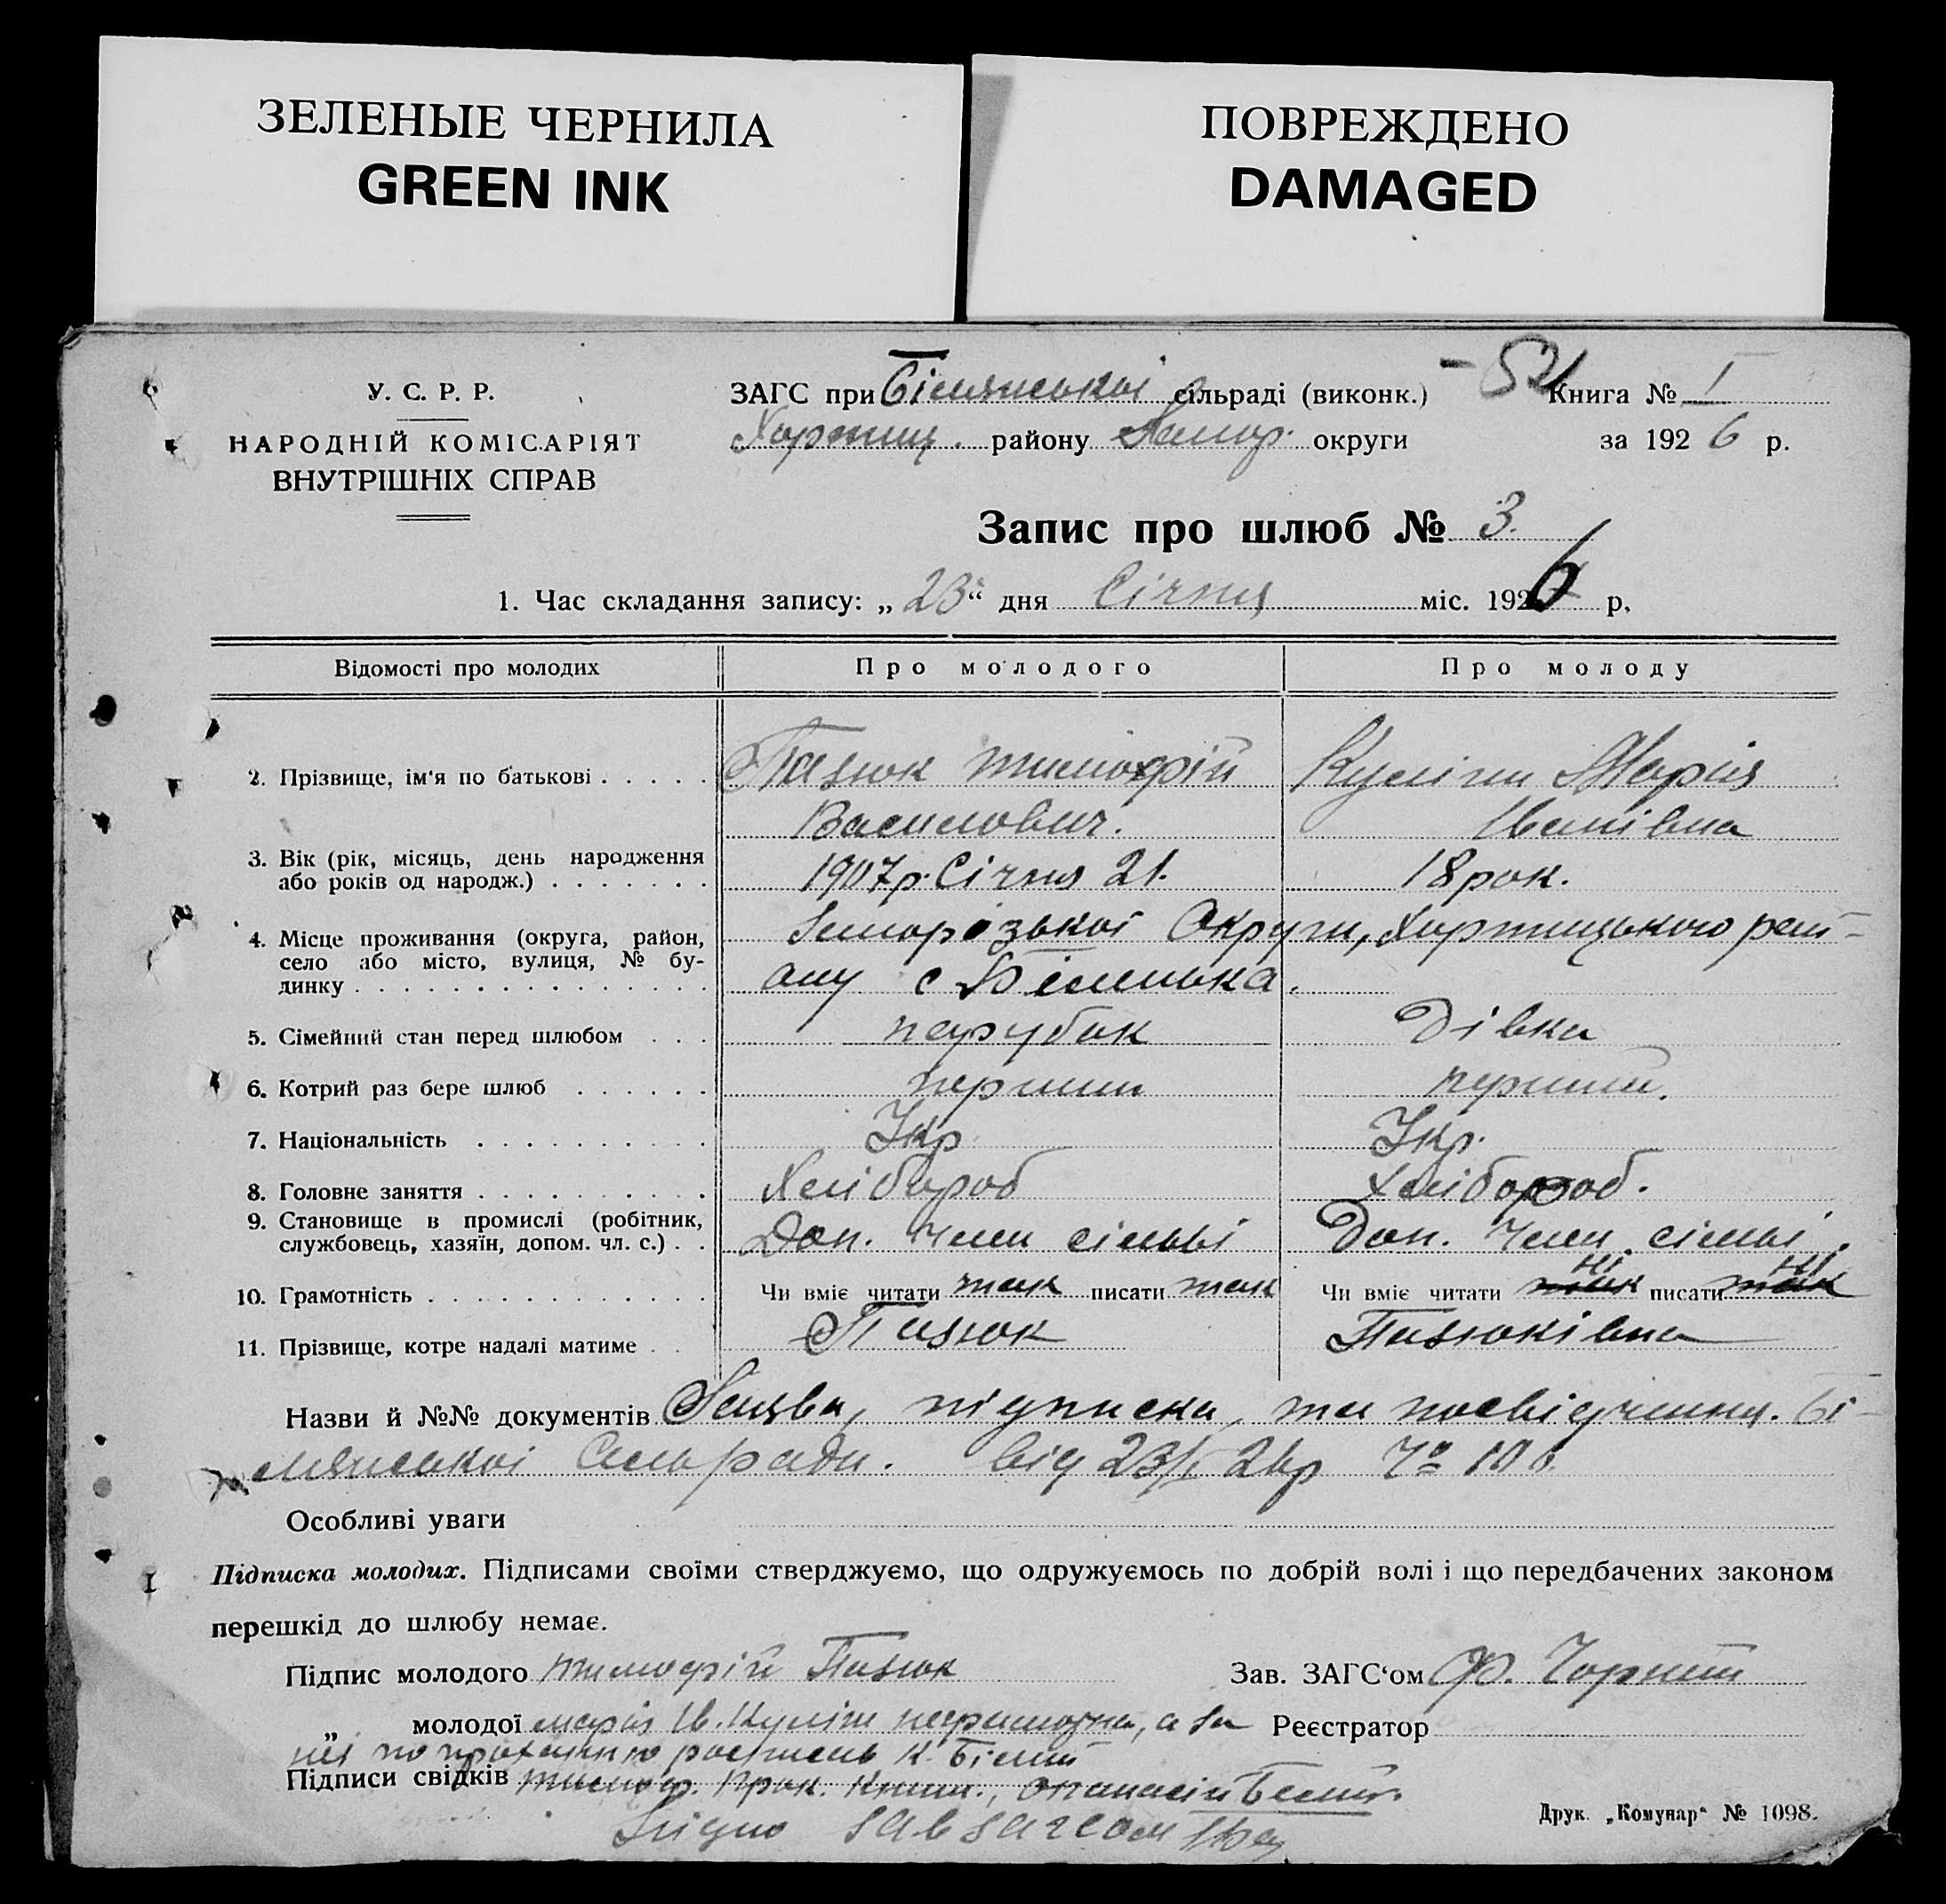 ЗЕЛЕНЫЕ ЧЕРНИЛА
GREEN INK
ПОВРЕЖДЕНО
DAMAGED
У. С. Р. Р.
НАРОДНІЙ КОМІСАРІЯТ
ВНУТРІШНІХ СПРАВ
ЗАГС при Білянської сільраді (виконк.) Книга № I
Хортиц. району Запор. округи за 1926 р.
Запис про шлюб № 3.
1. Час складання запису: „23“ дня Січня міс. 1926 р.
Відомості про молодих Про молодого Про молоду
2. Прізвище, ім'я по батькові Пазюк Тимофій Василович. Куліш Марія Іванівна
3. Вік (рік, місяць, день народження
або років од народж.) 1907р. Січня 21. 18 рок.
4. Місце проживання (округа, район,
село або місто, вулиця, № бу-
динку Запорізької Округи, Хортицького рай-
ону с Біленька.
5. Сімейний стан перед шлюбом парубок Дівка
6. Котрий раз бере шлюб перший перший.
7. Національність Укр Укр.
8. Головне заняття Хлібороб Хлібороб.
9. Становище в промислі (робітник,
службовець, хазяїн, допом. чл. с.) Доп. член сімьі Доп. член сімьі.
10. Грамотність Чи вміє читати так писати так Чи вміє читати ні писати ні
11. Прізвище, котре надалі матиме Пазюк Пазюківна
Назви й №№ документів Заява, підписка, та посвідчення. Бі-
лянської Сільради. від 23/I 26р
Особливі уваги
Підписка молодих. Підписами своїми стверджуємо, що одружуємось по добрій волі і що передбачених законом
перешкід до шлюбу немає.
Підпис молодого Тимофій Пазюк Зав. ЗАГС‘ом Ф. Чорний
„ молодої Марія Ів. Куліш неграмотна, а за Реєстратор
неї по проханню росписавсь К. Білий
Підписи свідків Тимоф. Прок. Опанасій Білий.
Згідно завзагсом
Друк. „Комунар“ № 1098.